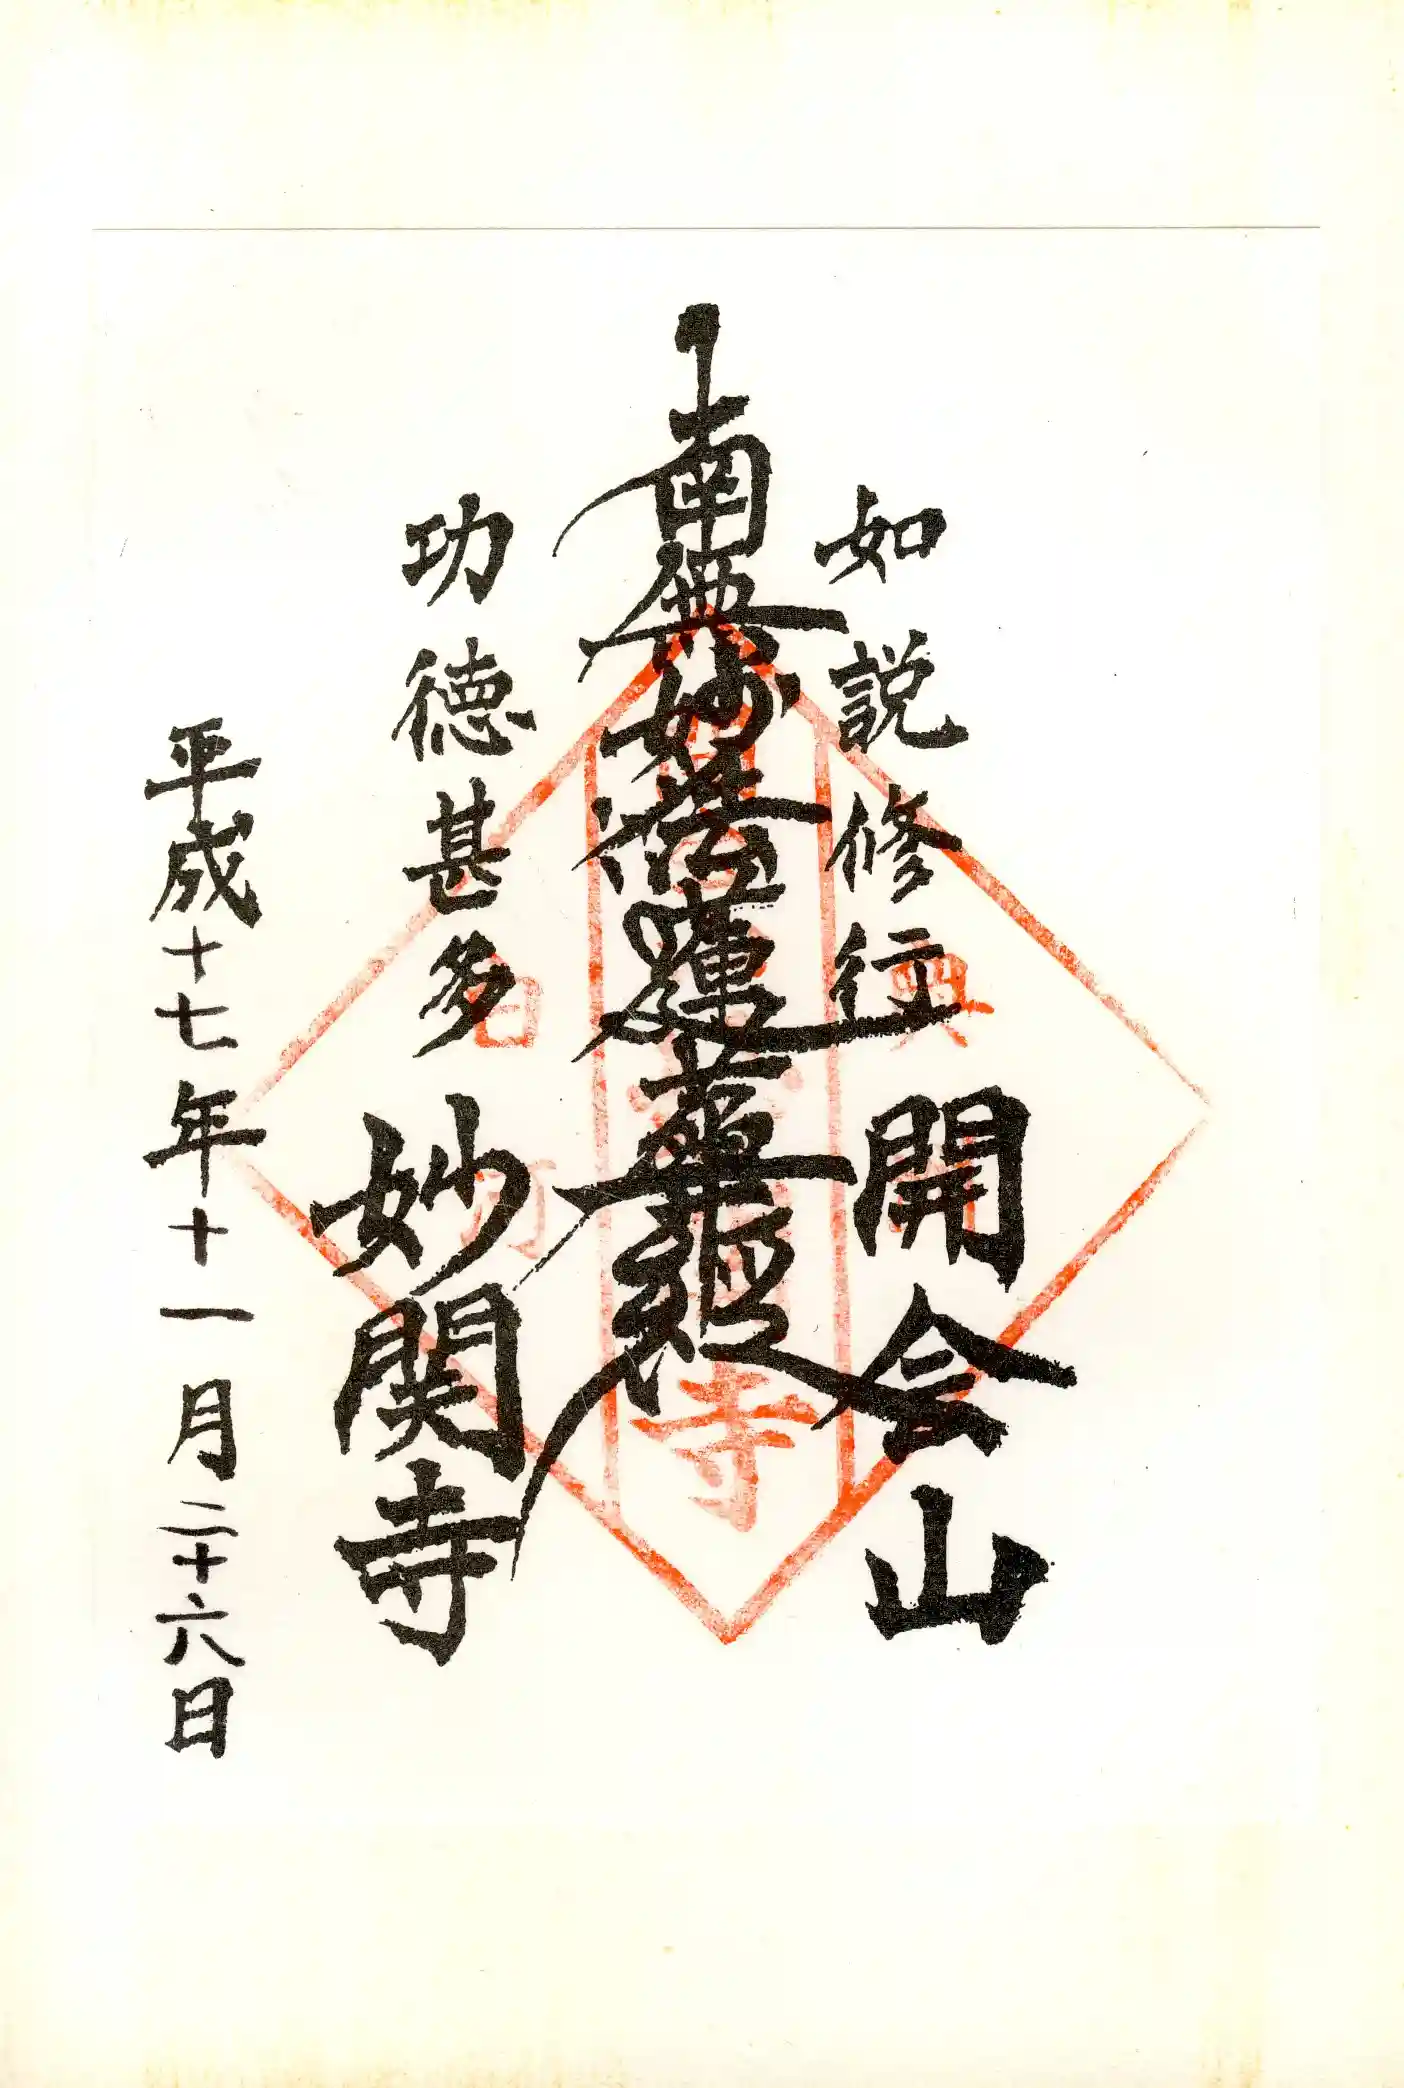 如説修行
開会山
南無妙法蓮華経
功徳甚多
妙関寺
平成十七年十一月二十六日
寺